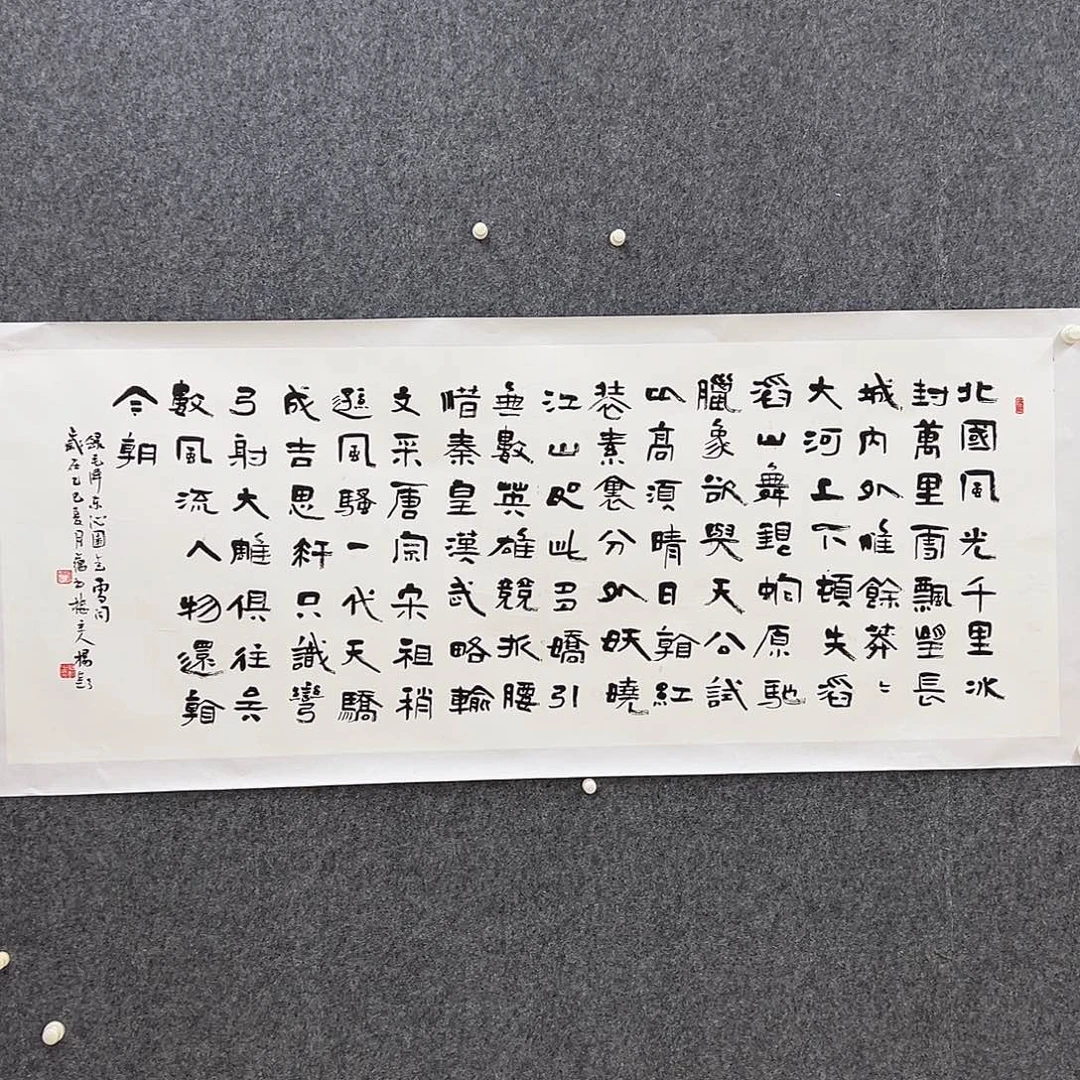 北國風光千里冰
封萬里雪飄望長
城內外惟餘莽〻
大河上下頓失滔
滔山舞銀蛇原馳
臘象欲與天公試
比高須晴日看紅
裝素裹分外妖曉
江山如此多嬌引
無數英雄競折腰
惜秦皇漢武略輸
文采唐宗宋祖稍
遜風騷一代天驕
成吉思汗只識彎
弓射大雕俱往矣
數風流人物還看
今朝
錄毛澤東沁園春雪詞
歲在乙巳夏月